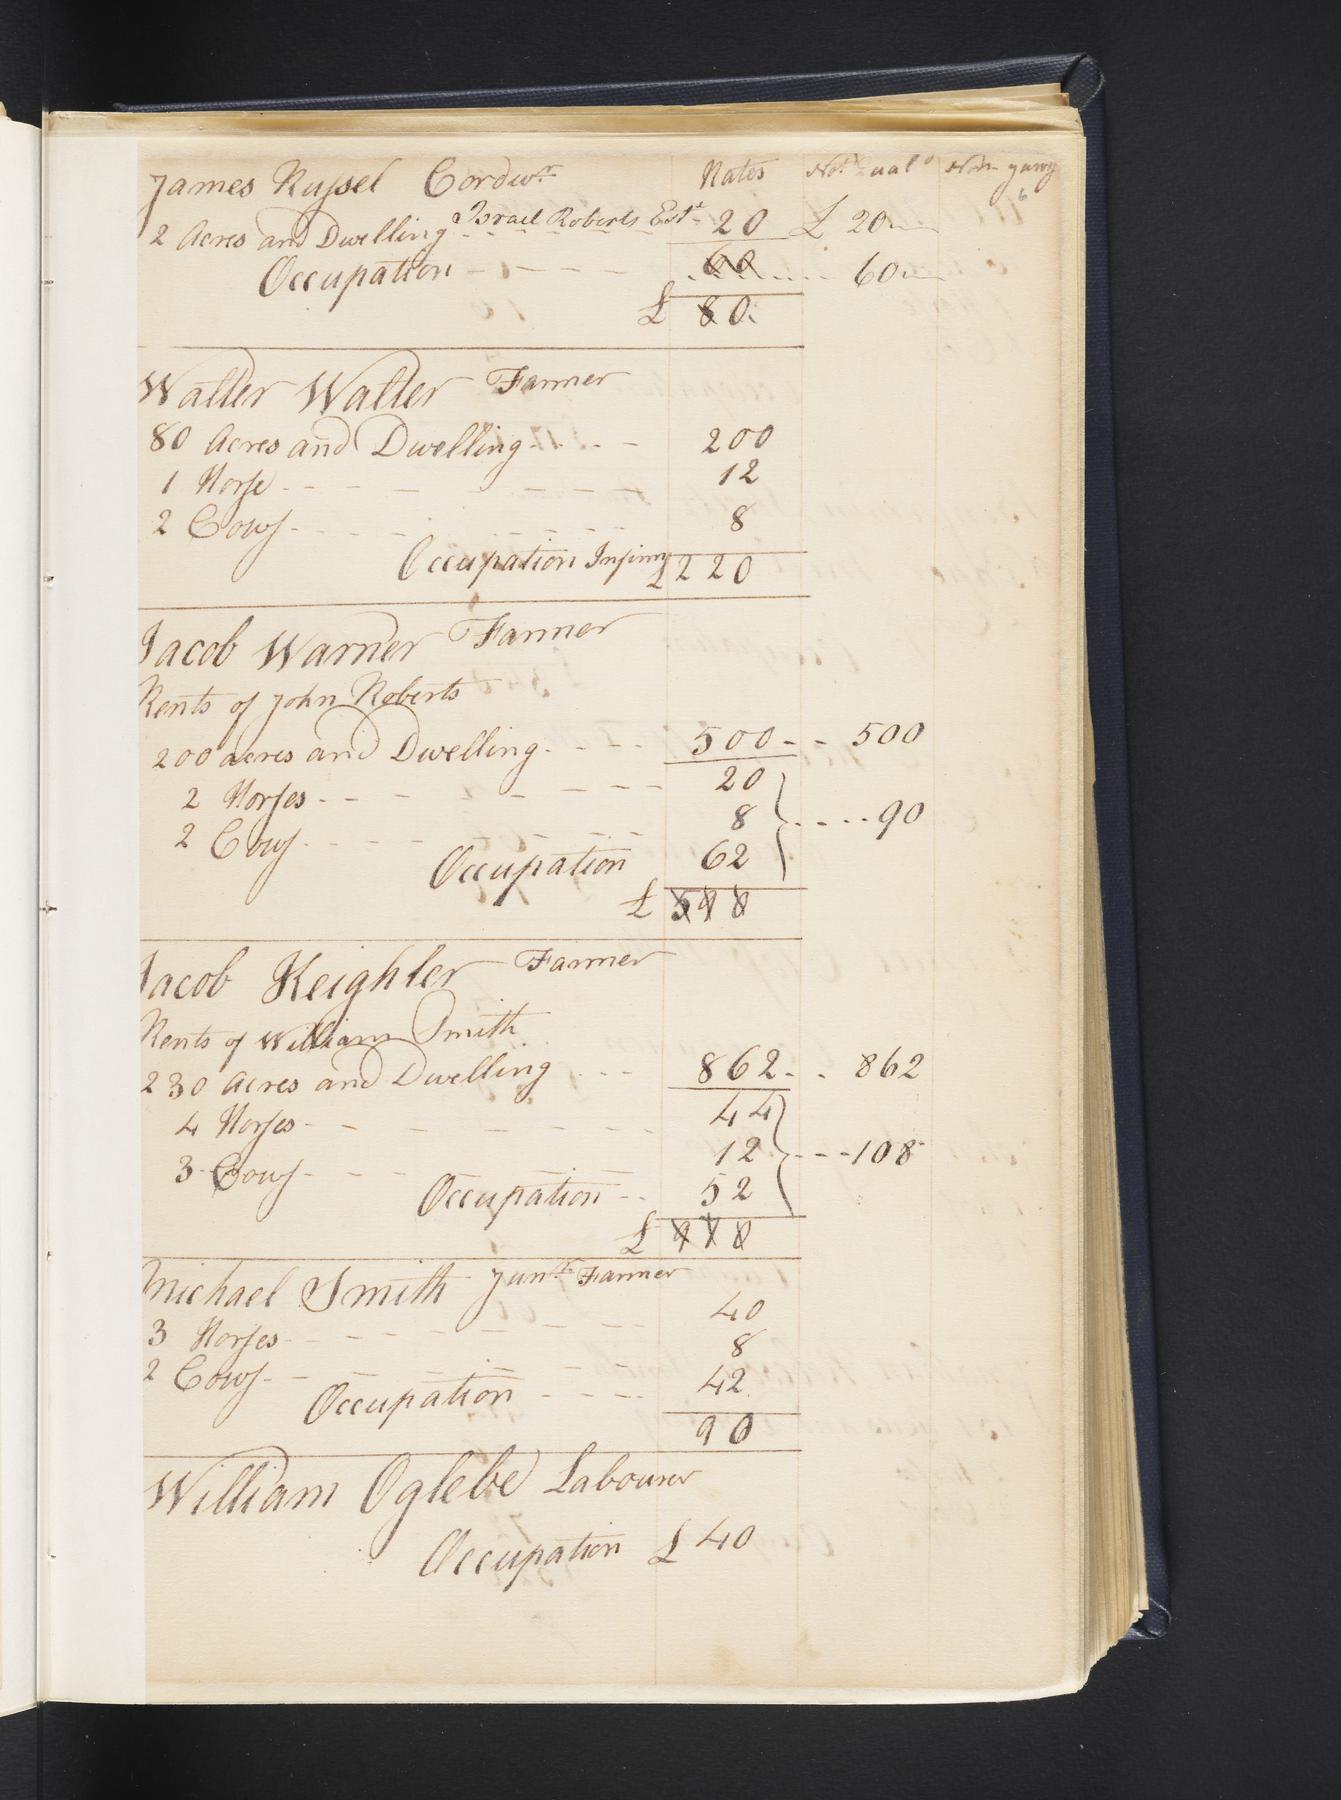 James Russel Cordwr Rates Not Quald Non jurors
6
2 Acres and Dwelling Israel Roberts Estt 20 £ 20
Occupation 60 60
£ 80
Walter Walter Farmer
80 Acres and Dwelling 200
1 Horse 12
2 Cows 8
Occupation Infirm £220
Jacob Warner Farmer
Rents of John Roberts
200 acres and Dwelling 500 500
2 Horses 20
2 Cows 8 90
Occupation 62
£ 598
Jacob Keighler Farmer
Rents of William Smith
230 Acres and Dwelling 862 862
4 Horses 44
3 Cows 12 108
Occupation 52
£ 978
Michael Smith Junr Farmer
3 Horses 40
2 Cows 8
Occupation 42
90
William Oglebe Labourer
Occupation £ 40